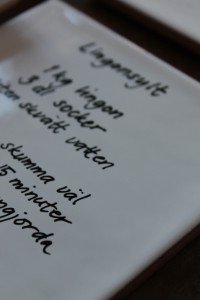 Lingonsylt
1 kg lingon
3 dl socker
skvätt vatten
skumma väl
15 minuter